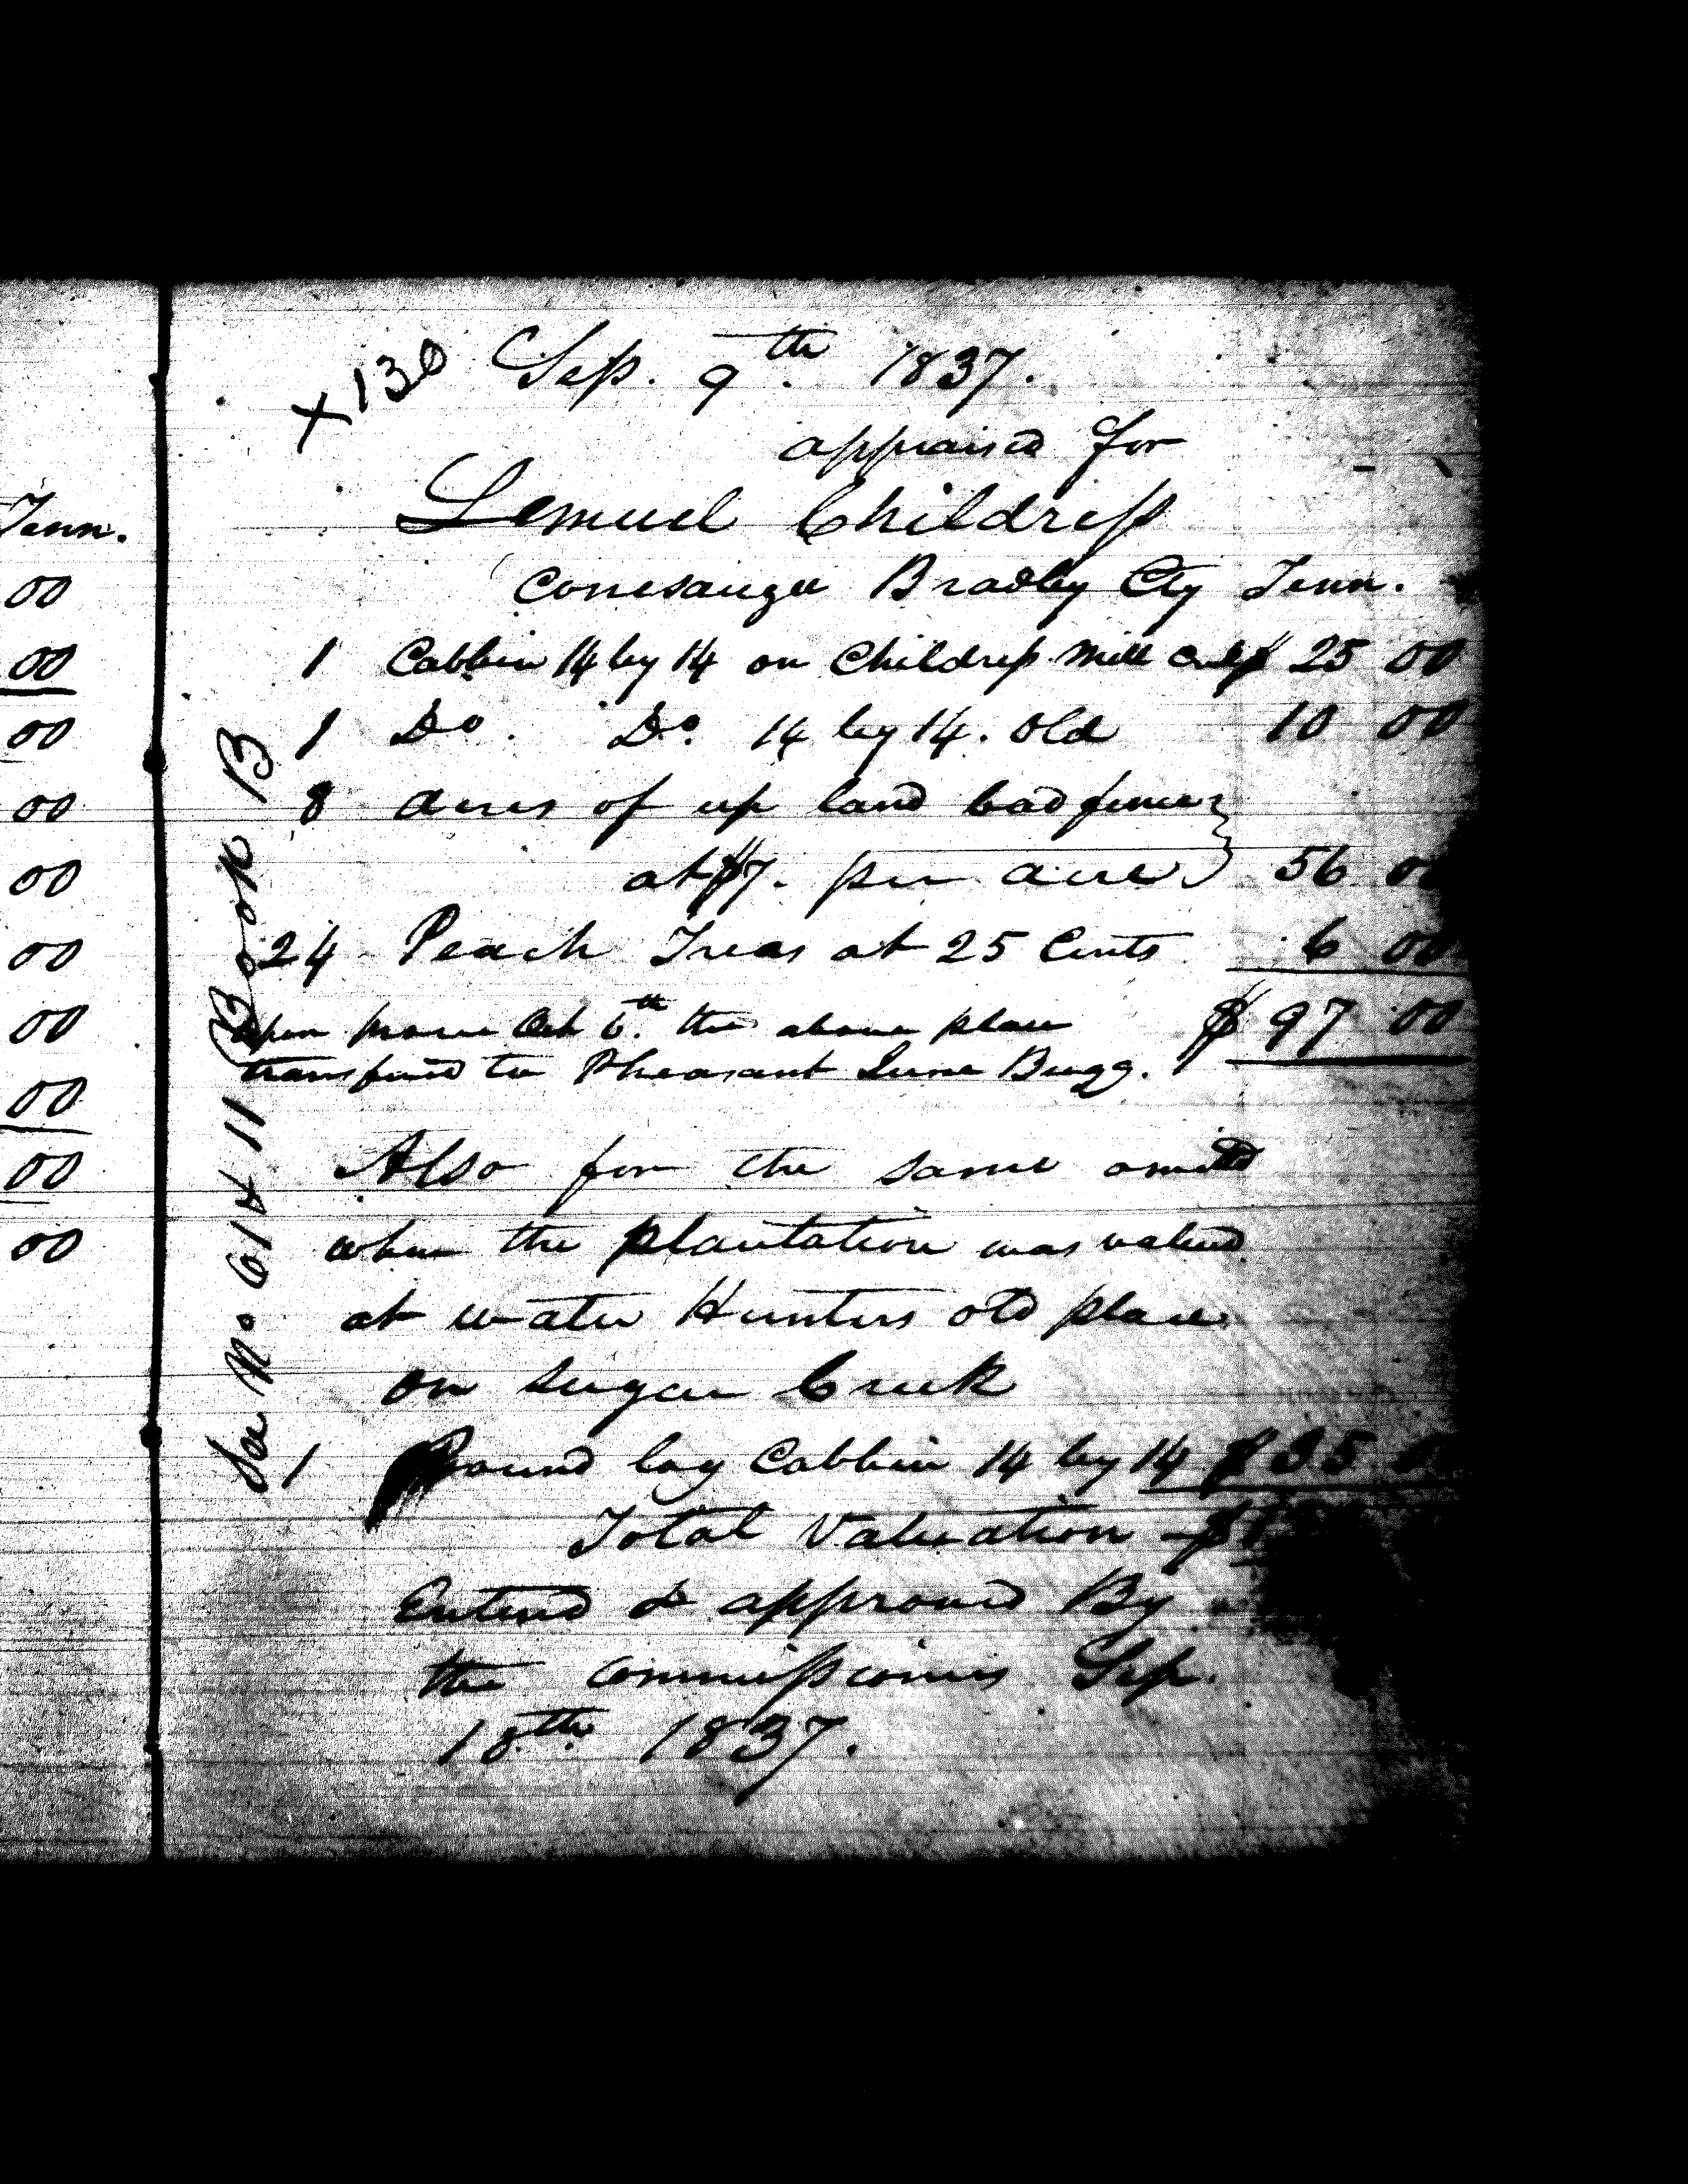 Tenn.
00
00
00
00
00
00
00
00
00
00
X130 Sep. 9th. 1837.
appraised for
Lemuel Childress
Conesauga Bradley Cty Tenn.
1 Cabbin 14 by 14 on Childress Mill $ 25 00
1 Do. Do. 14 by 14. old 10 00
8 acres of up land bad fence
at $7. per acre 56 00
24 Peach Trees at 25 Cents 6 00
$ 97 00
upon Oct 6th the above place
transferd to Pheasant Bugg.
Also for the same omitted
when the plantation was valued
at water Hunters old place
on Sugar Creek
1 Round log Cabbin 14 by 14 $ 35
Total Valuation $1
Enterd & approved By
the commissioners Sep.
18th. 1837.
No 61 & 11 Book B